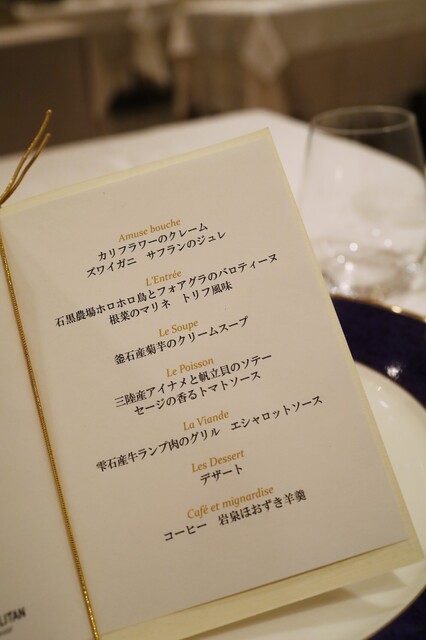 Amuse bouche
カリフラワーのクレーム
ズワイガニ　サフランのジュレ
L'Entrée
石黒農場ホロホロ鳥とフォアグラのバロティーヌ
根菜のマリネ　トリフ風味
Le Soupe
釜石産菊芋のクリームスープ
Le Poisson
三陸産アイナメと帆立貝のソテー
セージの香るトマトソース
La Viande
雫石産牛ランプ肉のグリル　エシャロットソース
Les Dessert
デザート
Café et mignardise
コーヒー　岩泉ほおずき羊羹